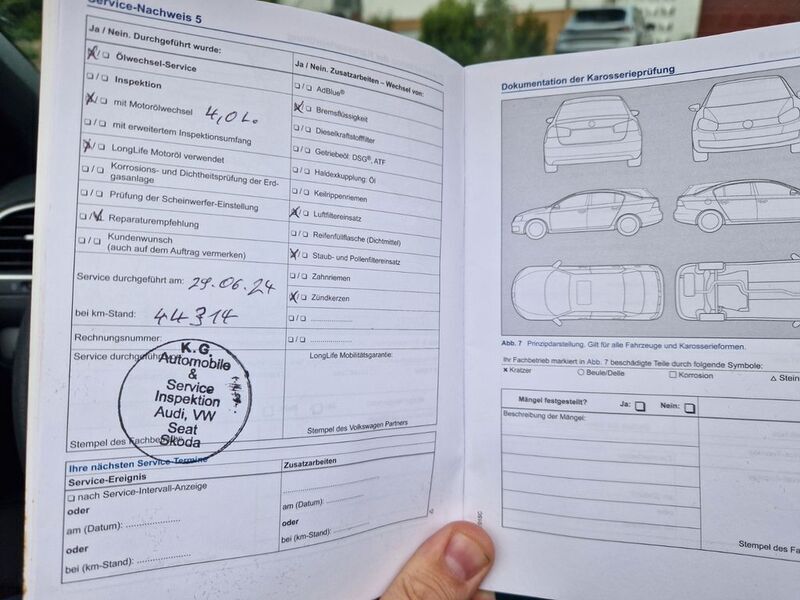 Service-Nachweis 5
Ja / Nein. Durchgeführt wurde:
X/❑ Ölwechsel-Service
❑/❑ Inspektion
X/❑ mit Motorölwechsel 4,0 L.
❑/❑ mit erweitertem Inspektionsumfang
X/❑ LongLife Motoröl verwendet
❑/❑ Korrosions- und Dichtheitsprüfung der Erd-
gasanlage
❑/❑ Prüfung der Scheinwerfer-Einstellung
❑/X Reparaturempfehlung
❑/❑ Kundenwunsch
(auch auf dem Auftrag vermerken)
Service durchgeführt am: 29.06.24
bei km-Stand: 44314
Rechnungsnummer:
Service durchgeführt
K.G.
Automobile
&
Service
Inspektion
Audi, VW
Seat
Skoda
Stempel des Fachbetriebs
Ja / Nein. Zusatzarbeiten – Wechsel von:
❑/❑ AdBlue®
X/❑ Bremsflüssigkeit
❑/❑ Dieselkraftstofffilter
❑/❑ Getriebeöl: DSG®, ATF
❑/❑ Haldexkupplung: Öl
❑/❑ Keilrippenriemen
X/❑ Luftfiltereinsatz
❑/❑ Reifenfüllflasche (Dichtmittel)
X/❑ Staub- und Pollenfiltereinsatz
❑/❑ Zahnriemen
X/❑ Zündkerzen
❑/❑ ....................
❑/❑ ....................
LongLife Mobilitätsgarantie:
Stempel des Volkswagen Partners
Ihre nächsten Service-Termine
Service-Ereignis
❑ nach Service-Intervall-Anzeige
oder
am (Datum): ....................
oder
bei (km-Stand): ....................
Zusatzarbeiten
....................
am (Datum): ....................
oder
bei (km-Stand): ....................
Dokumentation der Karosserieprüfung
Abb. 7 Prinzipdarstellung. Gilt für alle Fahrzeuge und Karosserieformen.
Ihr Fachbetrieb markiert in Abb. 7 beschädigte Teile durch folgende Symbole:
× Kratzer ○ Beule/Delle □ Korrosion △ Stein
Mängel festgestellt? Ja: ❑ Nein: ❑
Beschreibung der Mängel:
Stempel des Fa